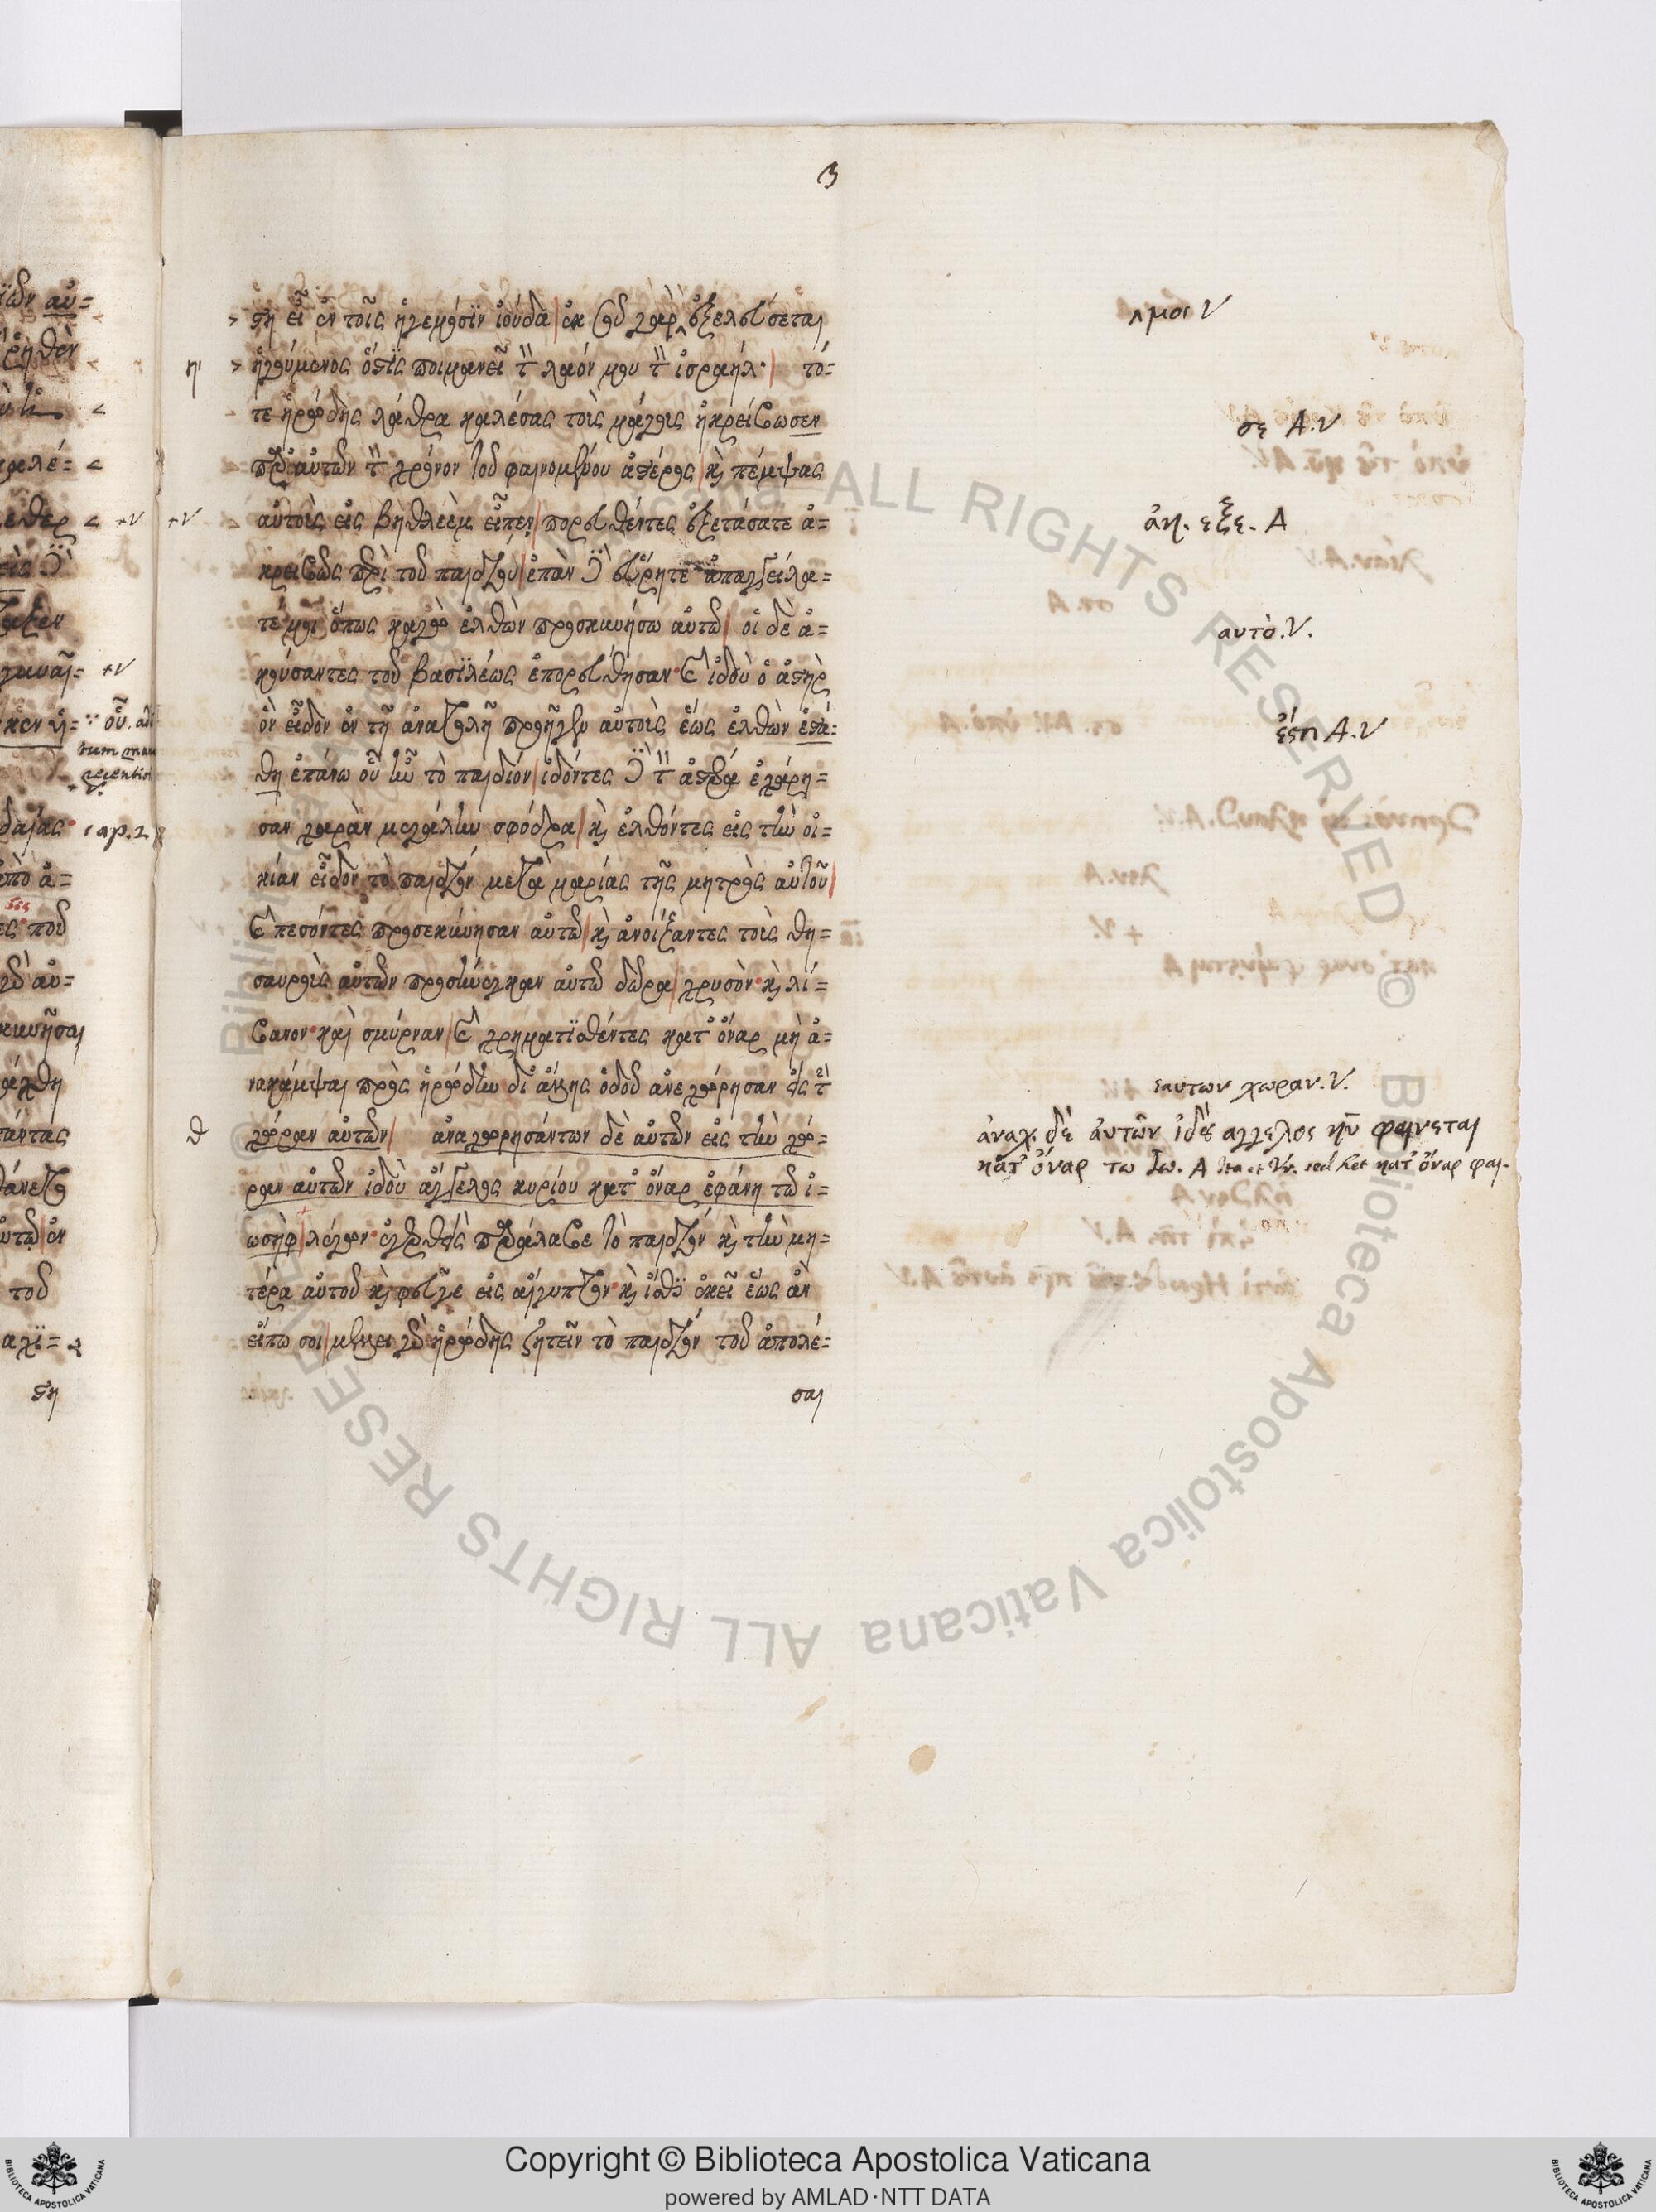 3
στη εἶ ἐν τοῖς ἡγεμόσϊν ἰούδα ἐκ σοῦ γὰρ ‸ ἐξελεύσεται
ἡγούμενος ὅστϊς ποιμανεῖ τὸν λαόν μου τὸν ἰσραήλ· τό=
τε ἡρώδης λάθρα καλέσας τοὺς μάγους ἠκρείβωσεν
παρ αὐτῶν τὸν χρόνον τοῦ φαινομένου ἀστέρος κỳ πέμψας
αὐτοὺς εἰς βηθλεὲμ εἶπεν πορευθέντες ἐξετάσατε ἀ=
κρειβῶς περὶ τοῦ παιδίου ἐπὰν δὲ εὕρητε ἀπαγγείλα=
τέ μοι ὅπως καγὼ ἐλθὼν προσκυνήσω αὐτῶ οἱ δὲ ἀ=
κούσαντες τοῦ βασϊλέως ἐπορεύθησαν· καὶ ἰδοὺ ὁ ἀστὴρ
ὃν εἶδον ἐν τῆ ἀνατολῆ προῆγεν αὐτοὺς ἕως ἐλθὼν ἐστά=
θη ἐπάνω οὗ ἦν τὸ παιδίον ἰδόντες δὲ τὸν ἀστέρα ἐχάρη=
σαν χαρὰν μεγάλην σφόδρα κỳ ἐλθόντες εἰς τὴν οἰ=
κίαν εἶδον τὸ παιδίον μετὰ μαρίας τῆς μητρὸς αὐτοῦ
καὶ πεσόντες προσεκύνησαν αὐτῶ κỳ ἀνοίξαντες τοὺς θη=
σαυροὺς αὐτῶν προσήνεγκαν αὐτῶ δῶρα χρυσὸν· κỳ λί=
βανον· καὶ σμύρναν καὶ χρηματϊσθέντες κατ' ὄναρ μὴ ἀ=
νακάμψαι πρὸς ἡρώδην δι' ἄλλης ὁδοῦ ἀνεχώρησαν εἰς τὴν
χώραν αὐτῶν ἀναχωρησάντων δὲ αὐτῶν εἰς τὴν χώ=
ραν αὐτῶν ἰδοὺ ἄγγελος κυρίου κατ' ὄναρ ἐφάνη τῶ ἰ=
ωσὴφ λέγων· ἐγερθεὶς παράλαβε τὸ παιδίον κỳ τὴν μη=
τέρα αὐτοῦ κỳ φεῦγε εἰς αἴγυπτον· κỳ ἴσθϊ ἐκεῖ ἕως ἂν
εἴπω σοι μέλλει γὰρ ἡρώδης ζητεῖν τὸ παιδίον τοῦ ἀπολέ=
σαι
η'
+V
θ
‸ μοι V
σε A.V
ἀκ. εξε. A
αυτο.V.
ἐστη A.V
εαυτων χωραν.V.
ἀναχ. δὲ ἀυτῶν ἰδοὺ αγγελος κυ̅ φαινεται
κατ' ὄναρ τω Ιω. A ita et V. sed het κατ' ὄναρ φαι.
ALL RIGHTS RESERVED © Biblioteca Apostolica Vaticana
Copyright © Biblioteca Apostolica Vaticana
powered by AMLAD·NTT DATA
BIBLIOTECA APOSTOLICA VATICANA
BIBLIOTECA APOSTOLICA VATICANA